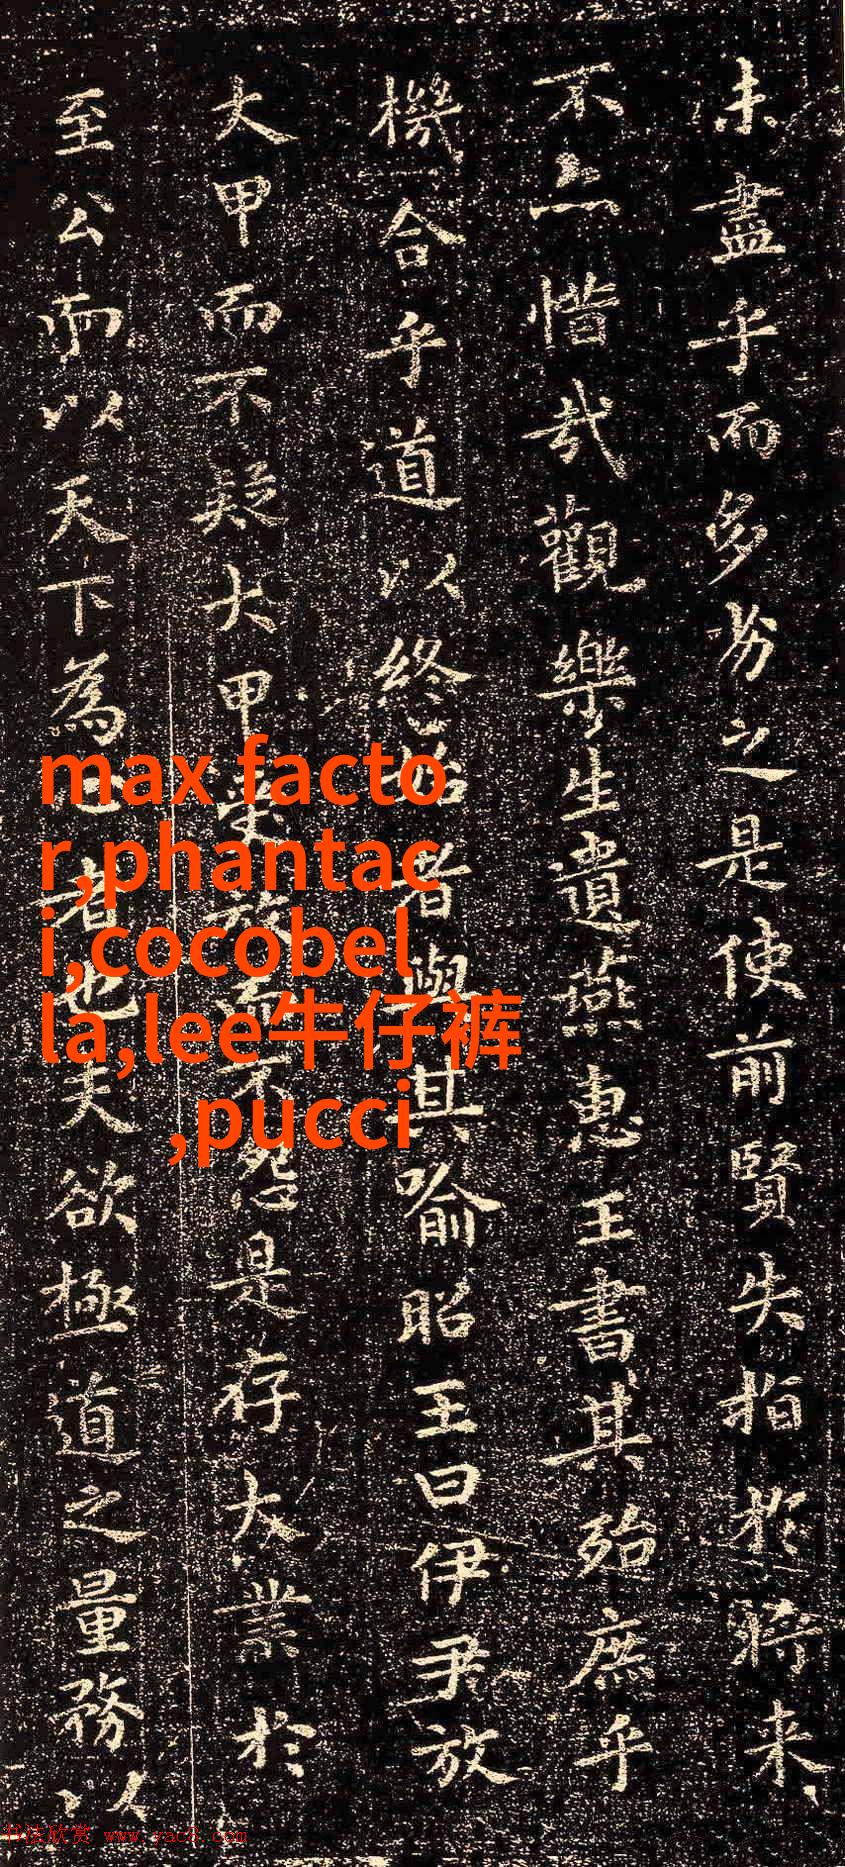 未盡乎而多劣之是使前賢失指於將來
不亦惜哉觀樂生遺燕惠王書其殆庶乎
機合乎道以終始者與其喻昭王曰伊尹放
大甲而不疑大甲受放而不怨是存大業於
至公而以天下為心者也夫欲極道之量務以
max facto
r,phantac
i,cocobel
la,lee牛仔裤
,pucci
书法欣赏 www.yac8.com